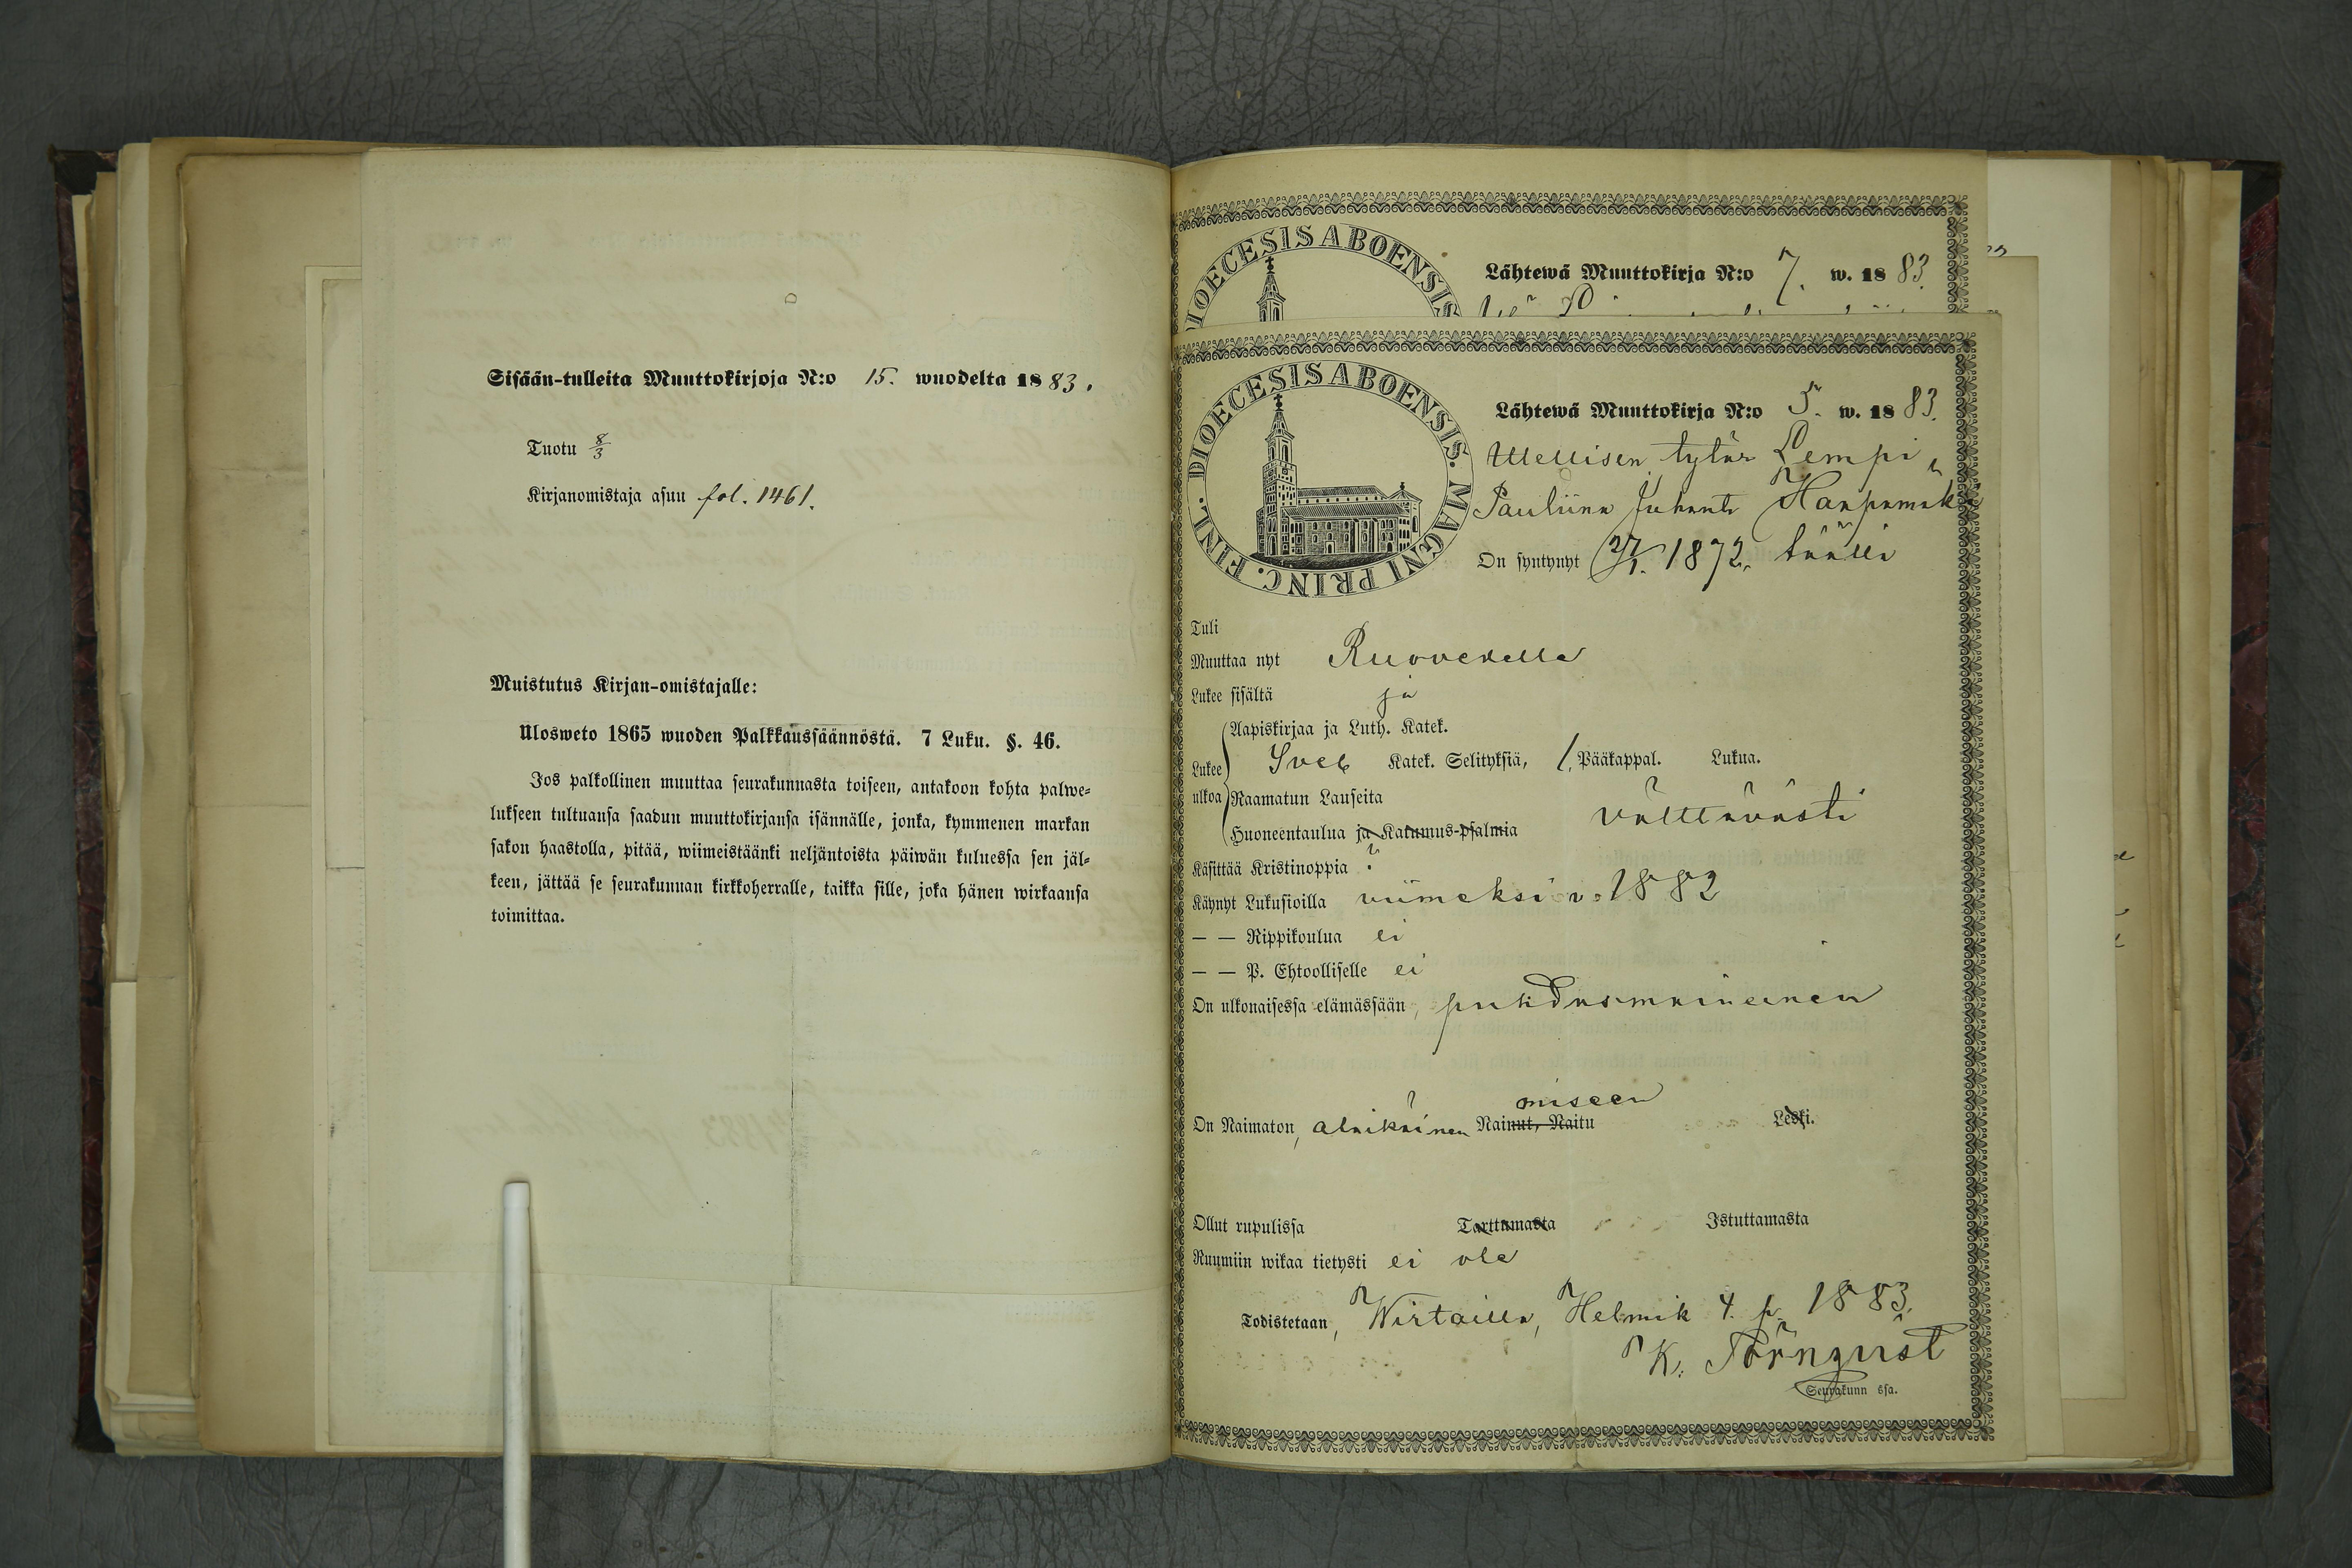 Sisään-tulleita Muuttokirjoja N:o 15. wuodelta 1883.
Tuotu 8/3
Kirjanomistaja asuu fol. 1461.
Muistutus Kirjan-omistajalle:
Ulosweto 1865 wuoden Palkkaussäännöstä. 7 Luku. §. 46.
Jos palkollinen muuttaa seurakunnasta toiseen, antakoon kohta palwe-
lukseen tultuansa saadun muuttokirjansa isännälle, jonka, kymmenen markan
sakon haastolla, pitää, wiimeistäänki neljäntoista päiwän kuluessa sen jäl-
keen, jättää se seurakunnan kirkkoherralle, taikka sille, joka hänen wirkaansa
toimittaa.
DIOECESIS ABOENSIS
Lähtewä Muuttokirja N:o 7. w. 1883.
FINL. DIOECESIS ABOENSIS. MAGNI PRINC.
Lähtewä Muuttokirja N:o 5. w. 1883.
Itellisen tytär Lempi
Pauliina Juhant. Haapamäki
On syntynyt 27/1. 1872. täällä
Tuli
Muuttaa nyt Ruovedelle
Lukee sisältä ja
Aapiskirjaa ja Luth. Katek.
Lukee Sveb Katek. Selityksiä, 1. Pääkappal. Lukua.
ulkoa Raamatun Lauseita välttävästi
Huoneentaulua ja Katumus-psalmia
Käsittää Kristinoppia
Käynyt Lukusioilla viimeksi v. 1882
— — Rippikoulua ei
— — P. Ehtoolliselle ei
On ulkonaisessa elämässään, puhdasmaineinen
miseen
On Naimaton, alaikäinen Nainut, Naitu Leski.
Ollut rupulissa Tarttumasta Istuttamasta
Ruumiin wikaa tietysti ei ole
Todistetaan, Wirtailla, Helmik 4. p. 1883.
K. Törnqvist
Seurakunn ssa.